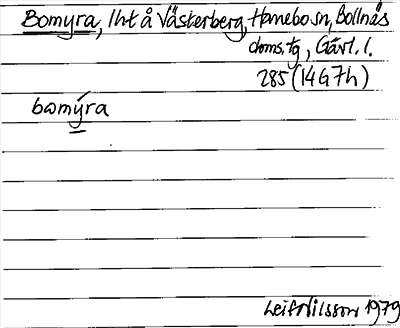 Bomyra, lht å Västerberg, Hanebo sn, Bollnäs
doms. tg, Gävl. l.
285 (14G7h)
bωmýra
Leif Nilsson 1979